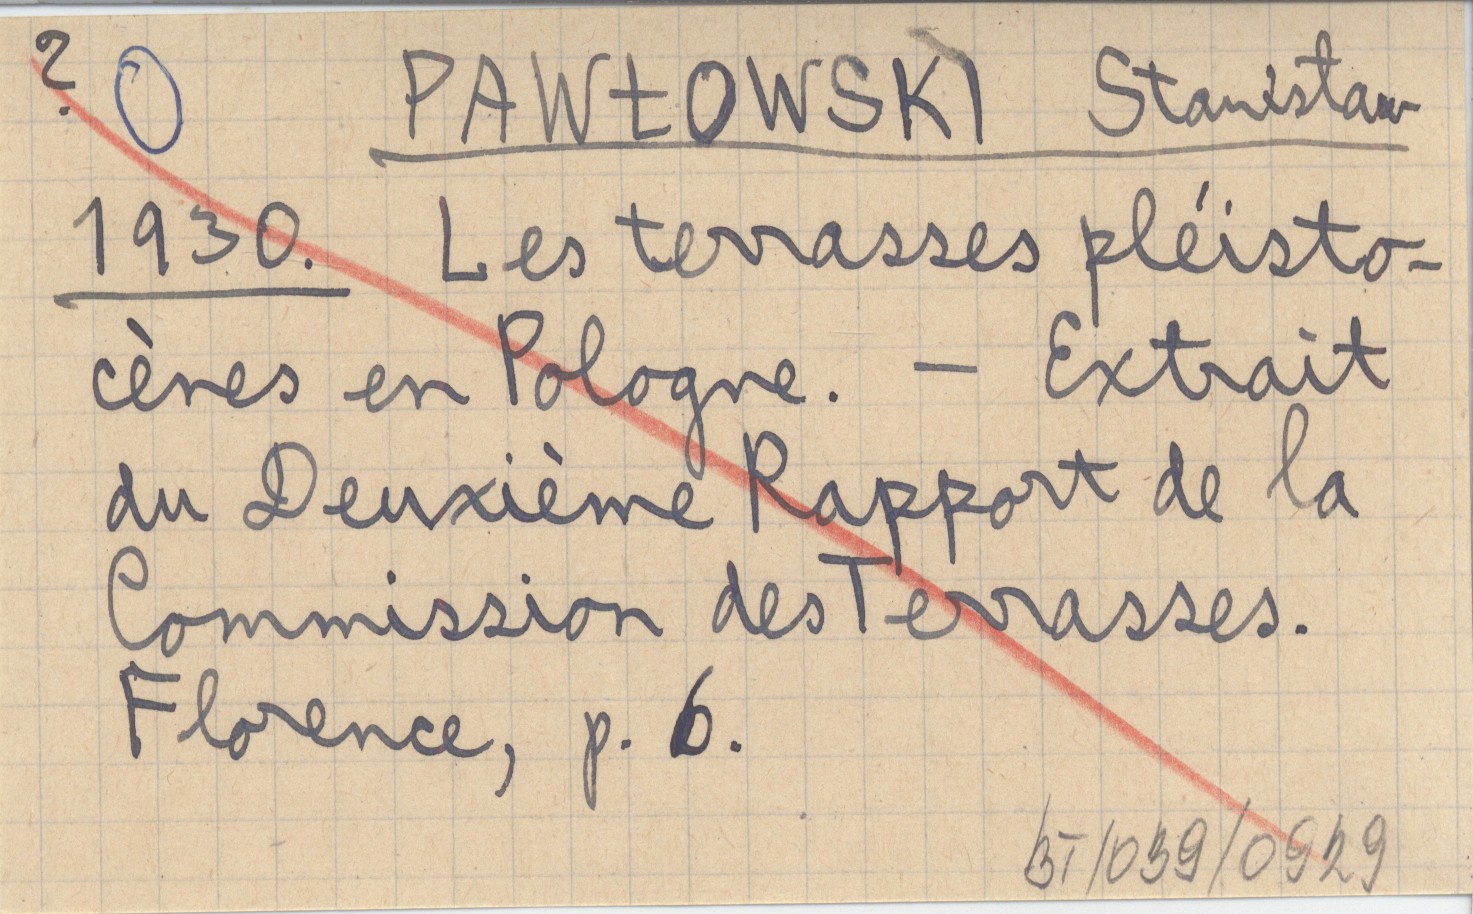 ? O PAWŁOWSKI Stanisław
1930. Les terrasses pléisto-
cènes en Pologne. — Extrait
du Deuxième Rapport de la
Commission des Terrasses.
Florence, p. 6.
BT/039/0929